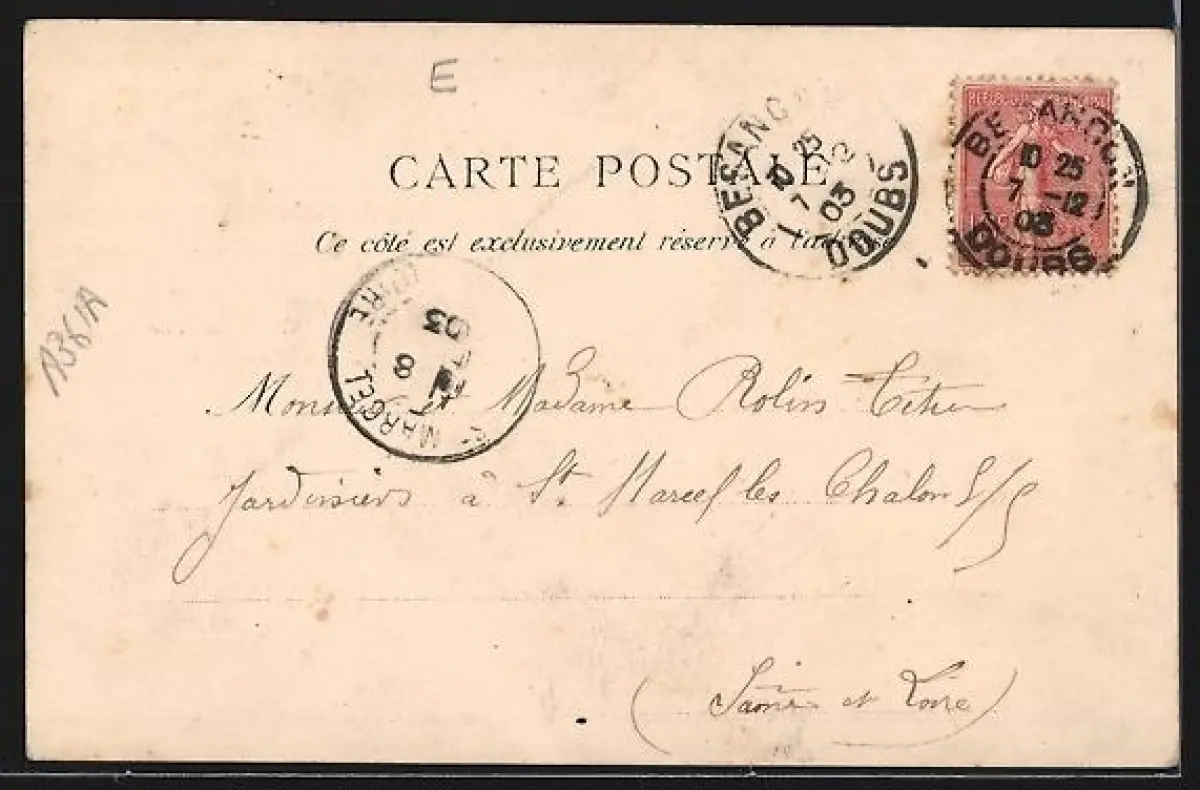 E
CARTE POSTALE
Ce côté est exclusivement réservé à l'adresse
BESANCON
10 25
7 -12
03
DOUBS
BESANCON
10 25
7 -12
03
DOUBS
REPUB
1361A
St MARCEL
8
03
Monsieur et Madame Rolin
Jardiniers à St. Marcel les Chalon S/S
(Saône et Loire)